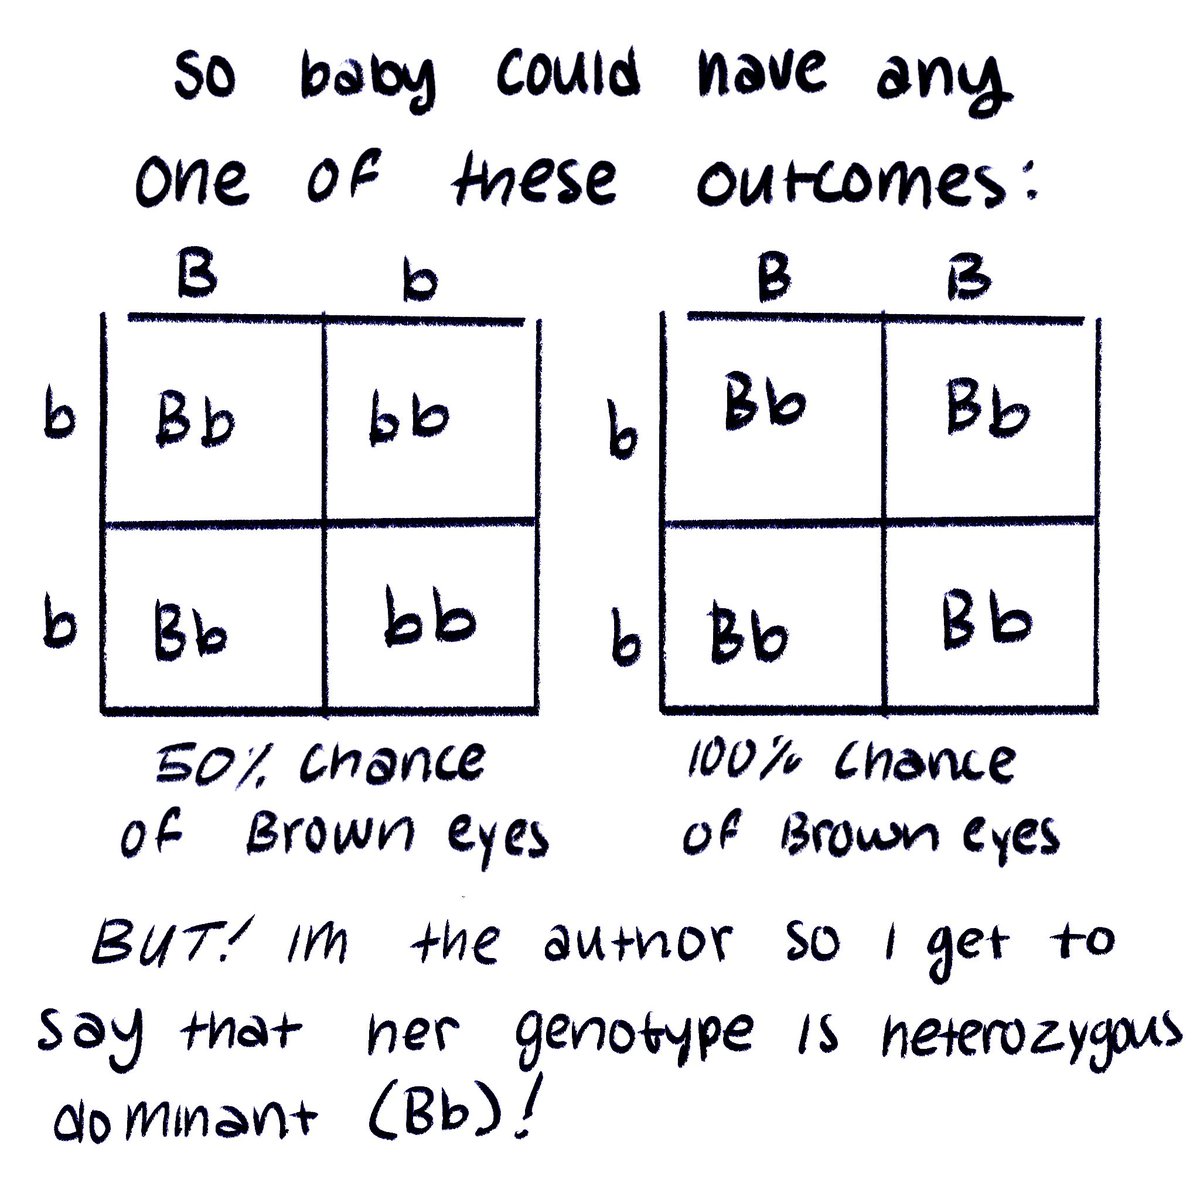 so baby could have any
one of these outcomes:
B b B B
b Bb bb b Bb Bb
b Bb bb b Bb Bb
50% chance 100% chance
of Brown eyes of Brown eyes
BUT! Im the author so I get to
say that her genotype is heterozygous
dominant (Bb)!